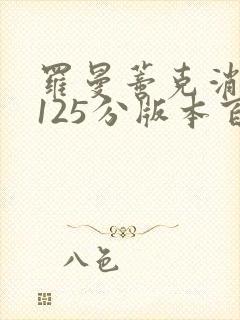 罗曼蒂克消
125分版本百
八色